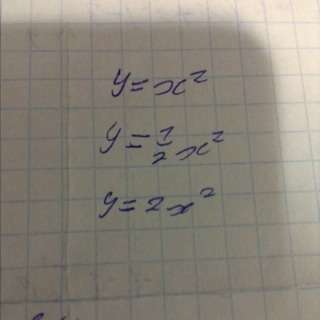 y=x²
y=1/2 x²
y=2x²